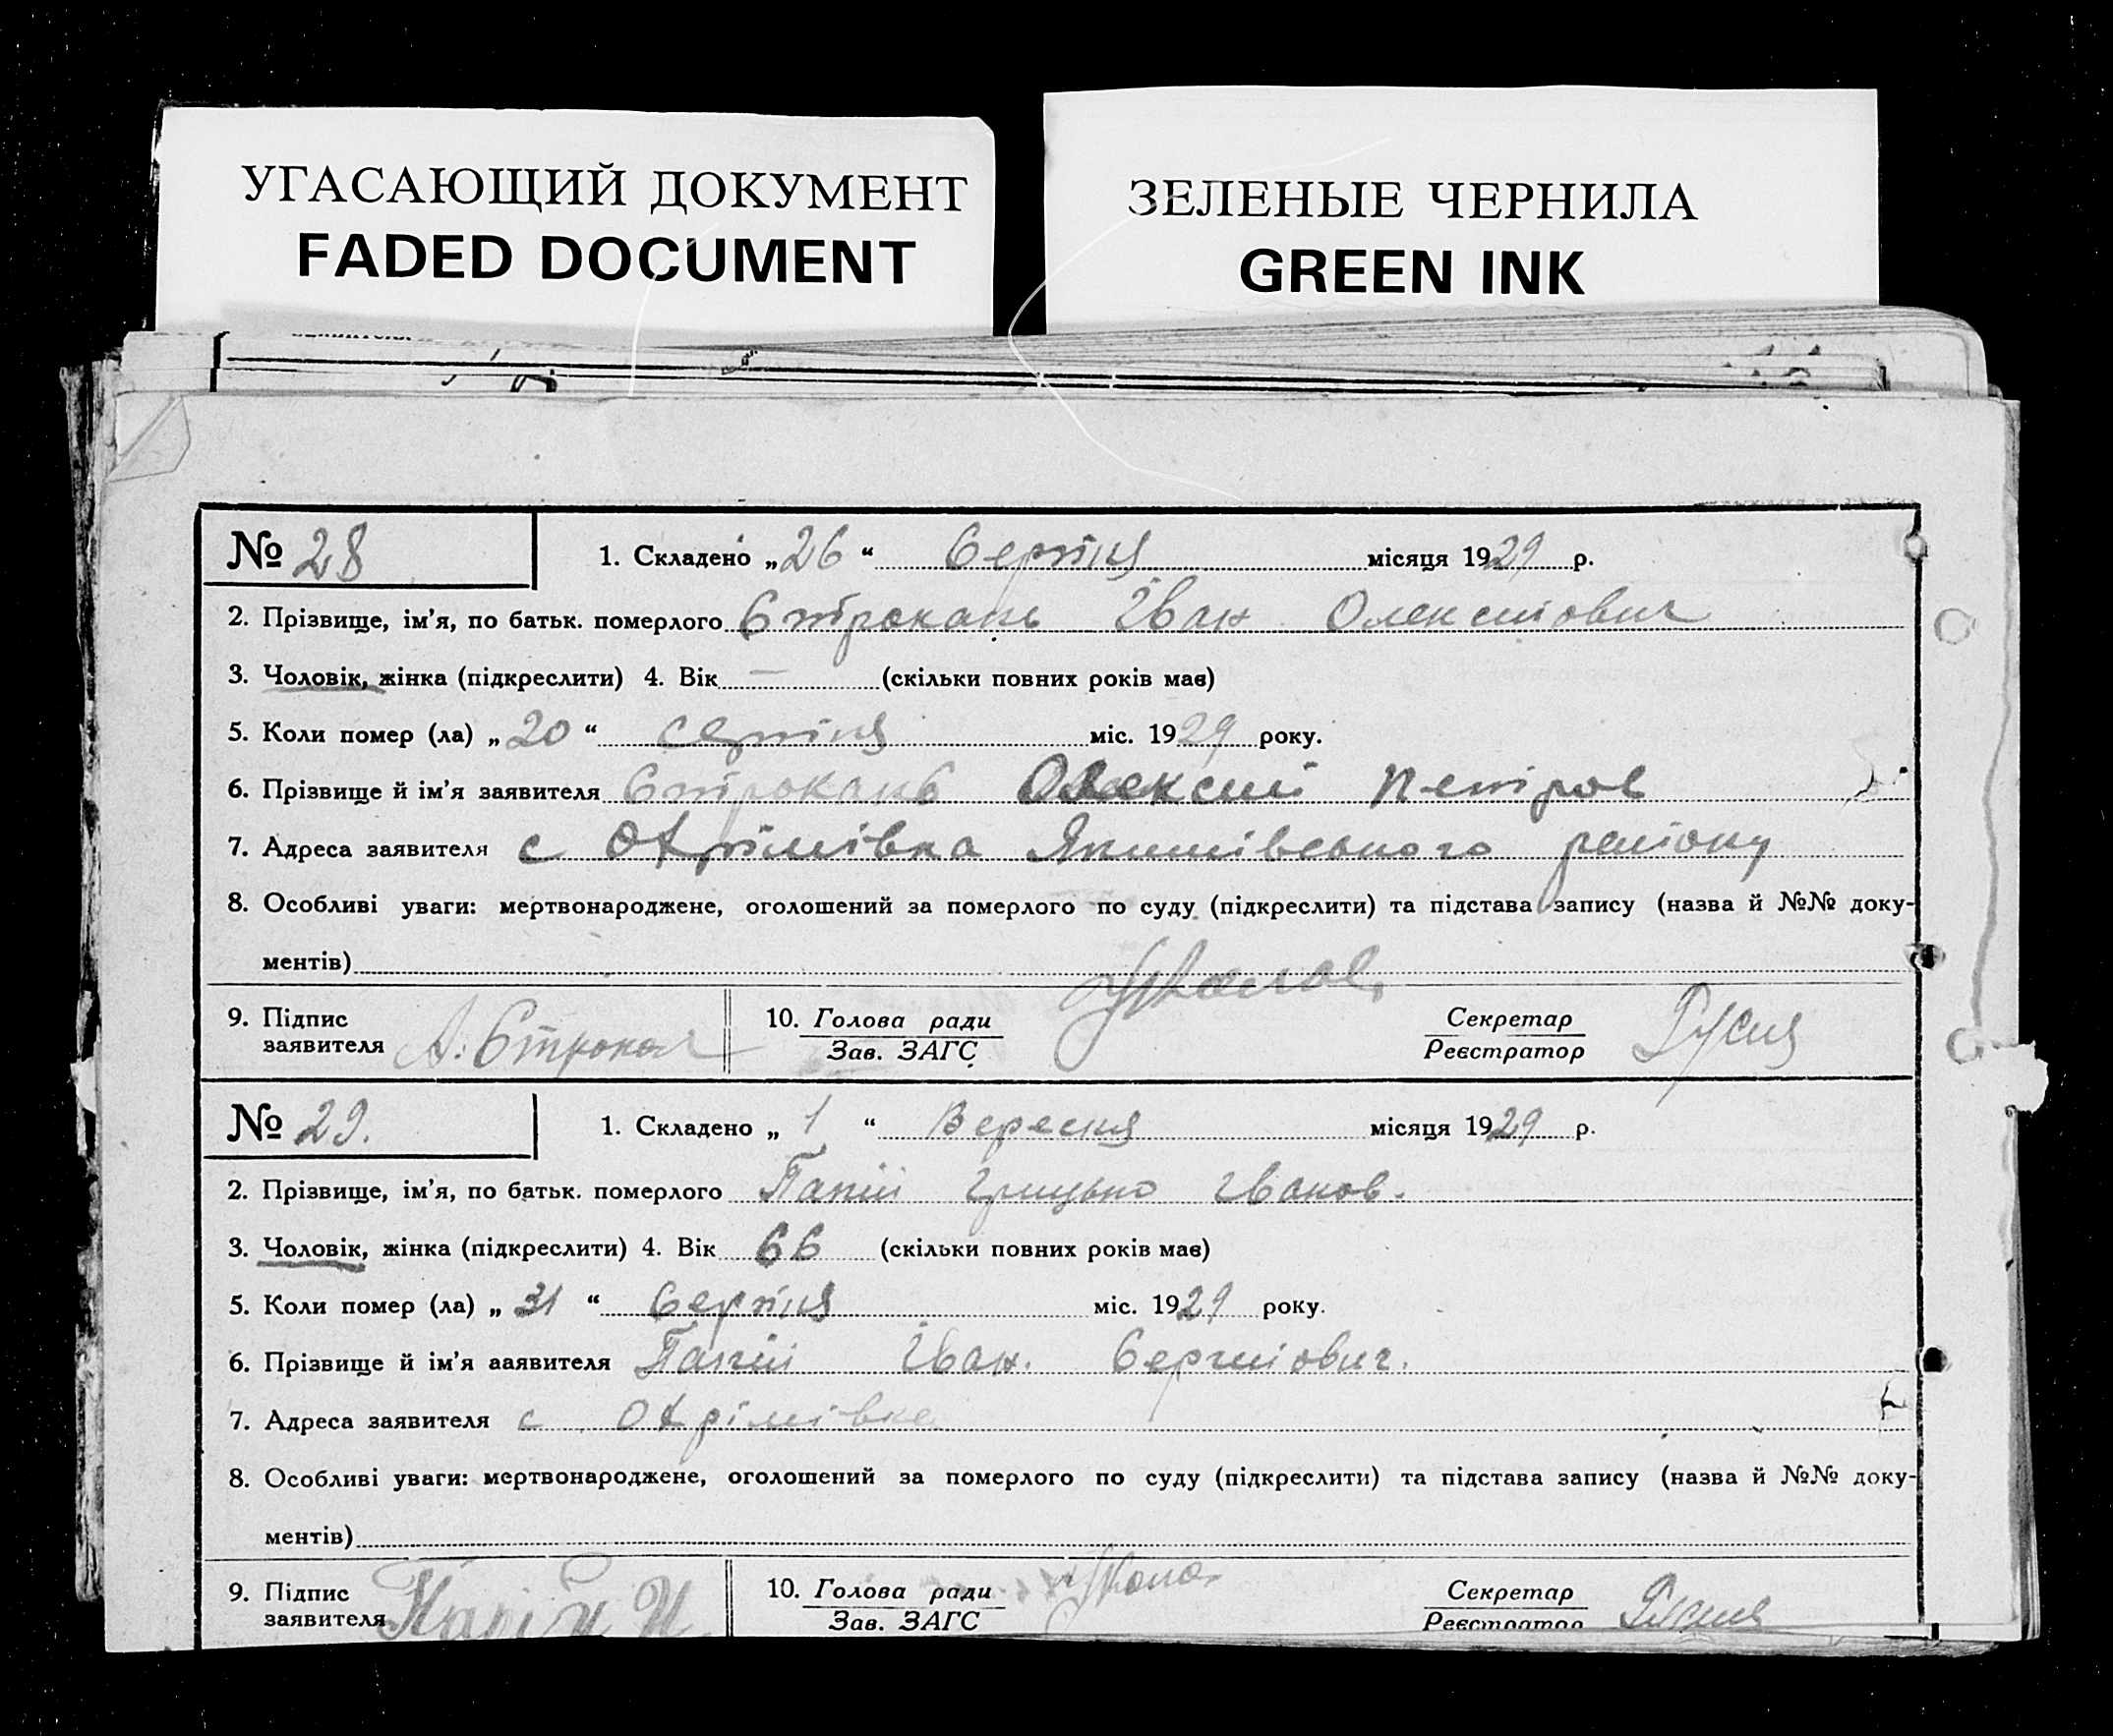 УГАСАЮЩИЙ ДОКУМЕНТ
FADED DOCUMENT
ЗЕЛЕНЫЕ ЧЕРНИЛА
GREEN INK
№ 28
1. Складено „26“ Серпня місяця 1929 р.
2. Прізвище, ім'я, по батьк. померлого Строкань Іван Олексійович
3. Чоловік, жінка (підкреслити) 4. Вік — (скільки повних років має)
5. Коли помер (ла) „20“ серпня міс. 1929 року.
6. Прізвище й ім'я заявителя Строкань Олексій Петров
7. Адреса заявителя с Охрімівка Якимівського району
8. Особливі уваги: мертвонароджене, оголошений за померлого по суду (підкреслити) та підстава запису (назва й №№ доку-
ментів)
9. Підпис заявителя А. Строкан 10. Голова ради Секретар
Зав. ЗАГС Реєстратор
№ 29.
1. Складено „1“ Вересня місяця 1929 р.
2. Прізвище, ім'я, по батьк. померлого Папій Грицько Іванов.
3. Чоловік, жінка (підкреслити) 4. Вік 66 (скільки повних років має)
5. Коли помер (ла) „31“ Серпня міс. 1929 року.
6. Прізвище й ім'я ааявителя Папій Іван. Сергійович.
7. Адреса заявителя с Охрімівка
8. Особливі уваги: мертвонароджене, оголошений за померлого по суду (підкреслити) та підстава запису (назва й №№ доку-
ментів)
9. Підпис заявителя Папій И 10. Голова ради Секретар
Зав. ЗАГС Реєстратор